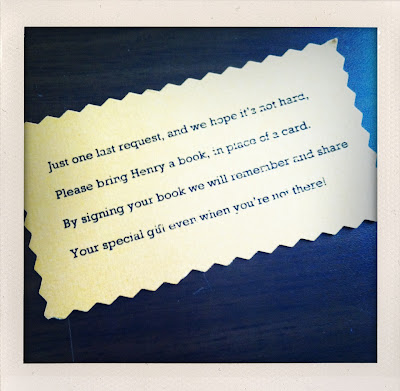 Just one last request, and we hope it's not hard,
Please bring Henry a book, in place of a card.
By signing your book we will remember and share
Your special gift even when you're not there!